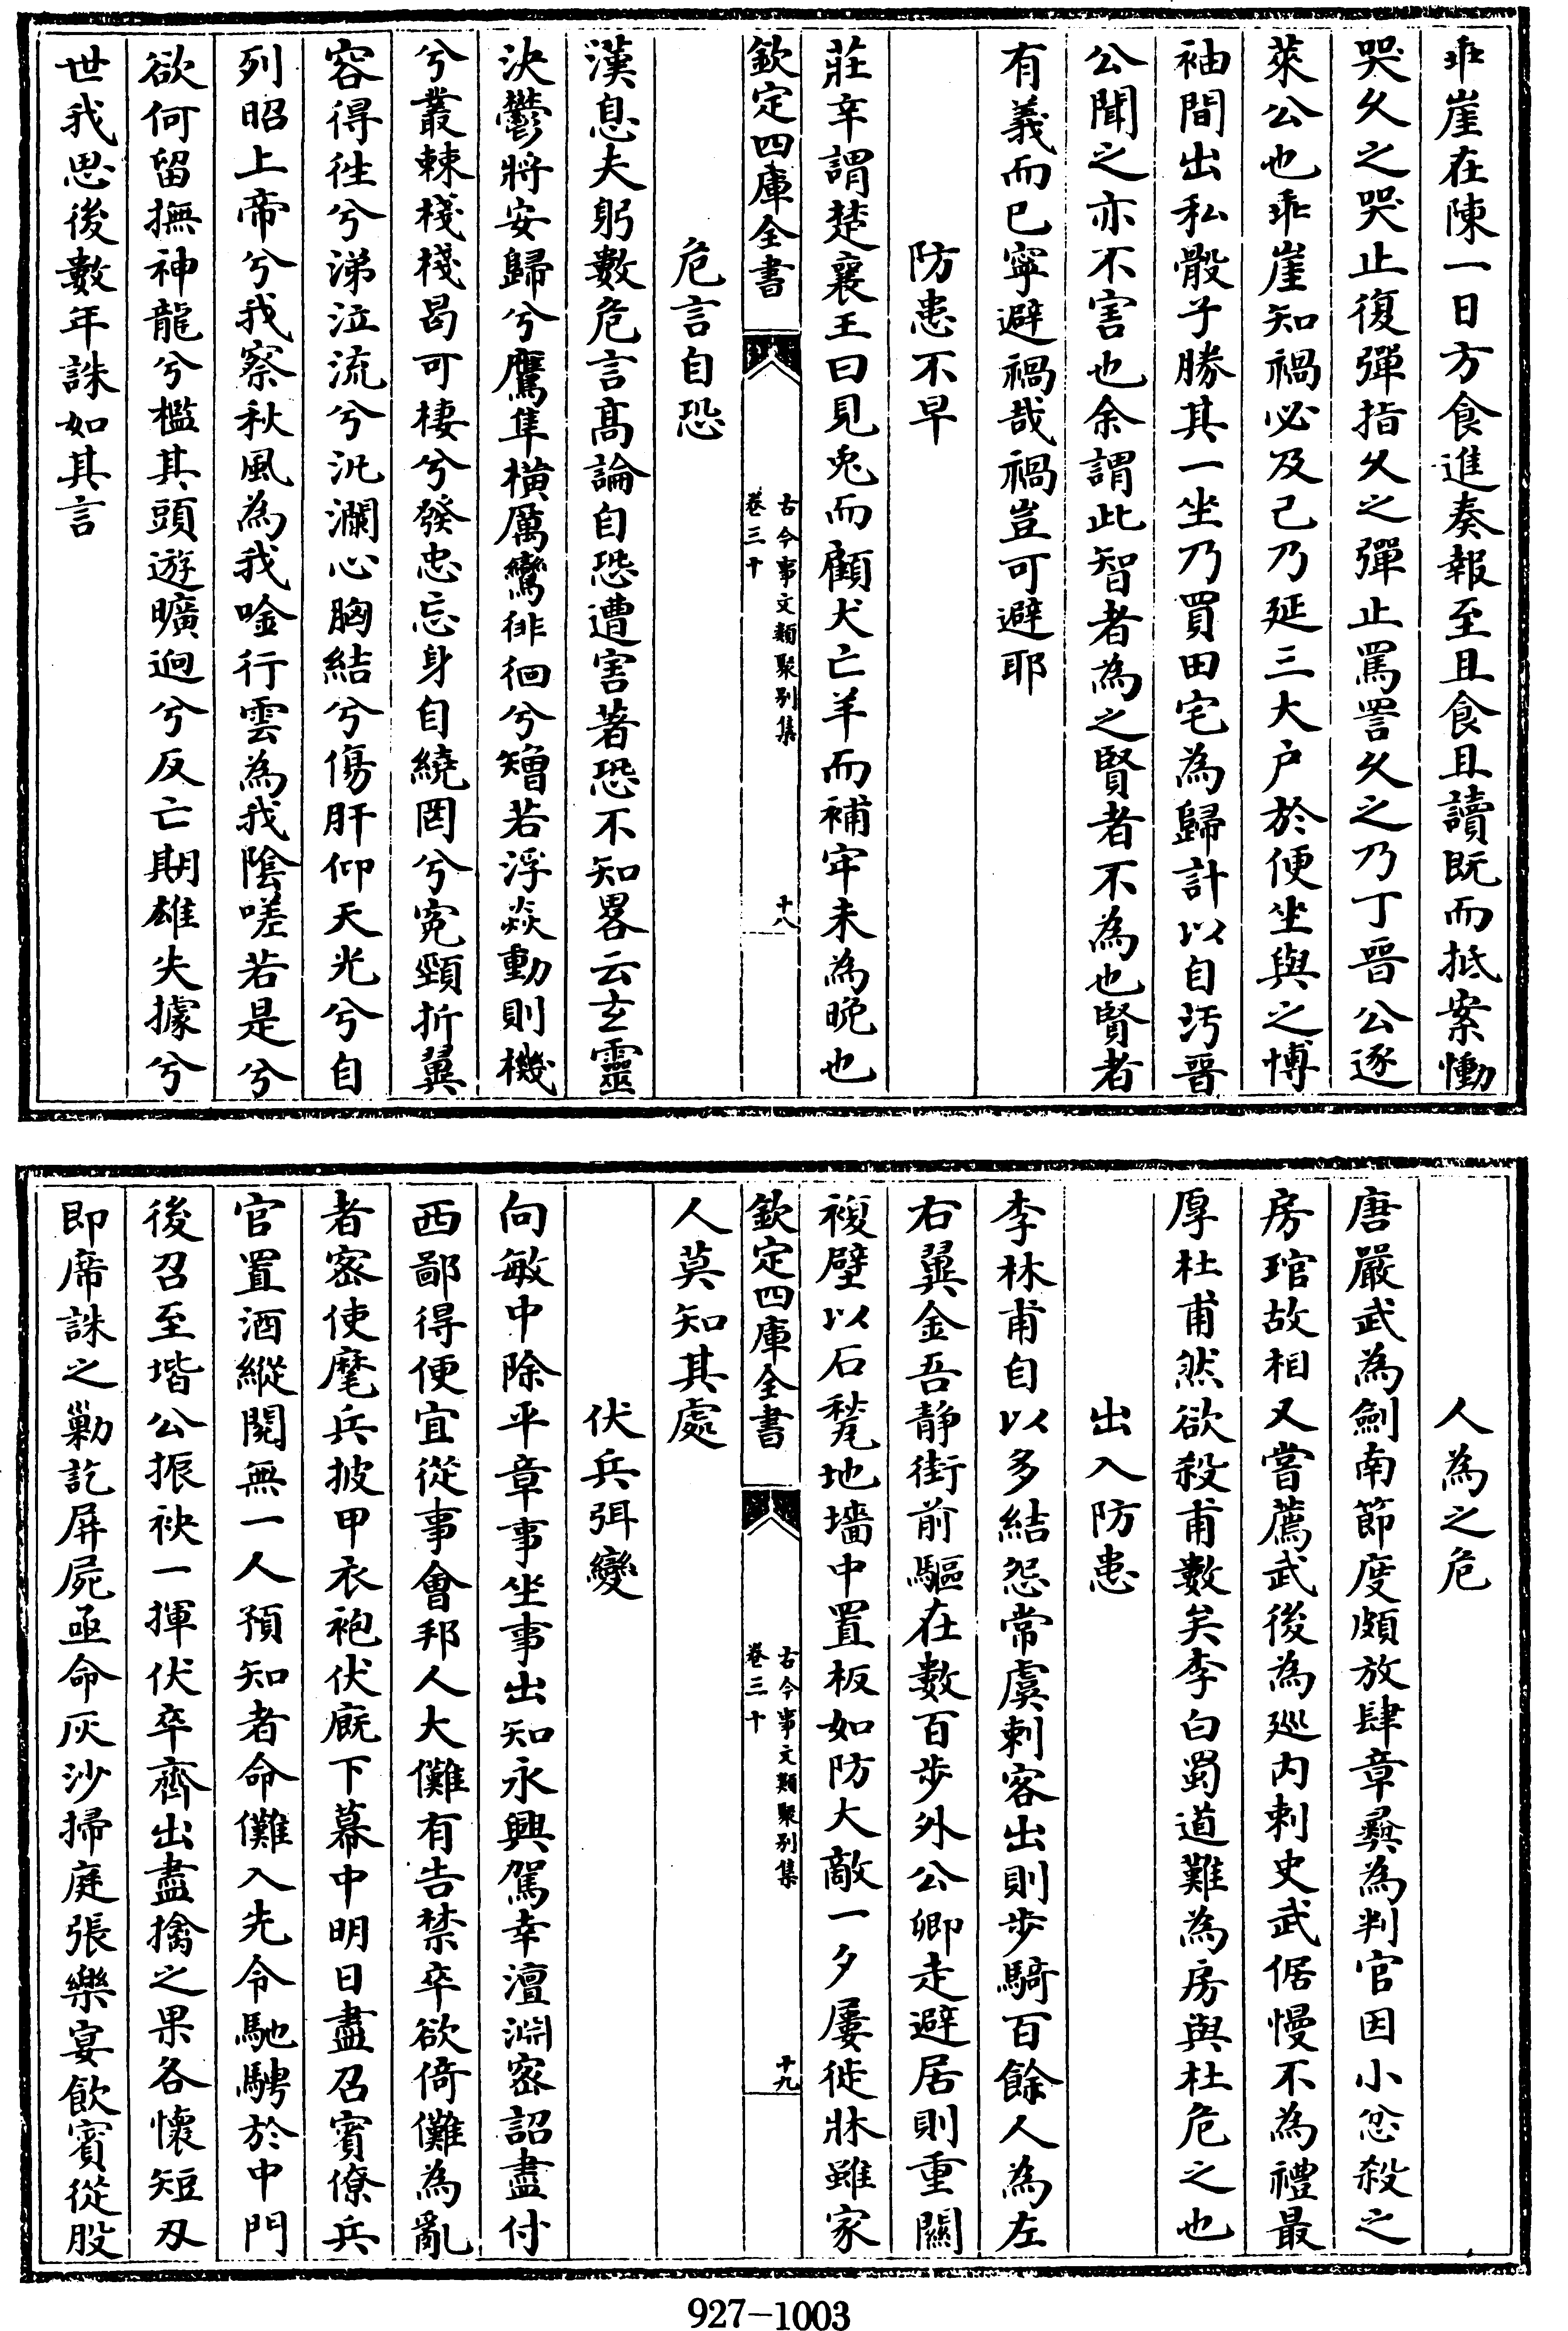 乖崖在陳一日方食進奏報至且食且讀既而抵案慟
哭久之哭止復彈指久之彈止罵詈久之乃丁晉公逐
萊公也乖崖知禍必及己乃延三大户於便坐與之博
袖間出私骰子勝其一坐乃買田宅為歸計以自汚晉
公聞之亦不害也余謂此智者為之賢者不為也賢者
有義而已寧避禍哉禍豈可避耶
防患不早
莊辛謂楚襄王曰見兎而顧犬亡羊而補牢未為晚也
欽定四庫全書
古今事文類聚别集
卷三十
十八
危言自恐
漢息夫躬數危言高論自恐遭害著恐不知畧云玄靈
決鬱將安歸兮鷹隼橫厲鸞徘徊兮矰若浮猋動則機
兮叢棘棧棧曷可棲兮發忠忘身自繞罔兮寃頸折翼
容得徃兮涕泣流兮汍瀾心胸結兮傷肝仰天光兮自
列昭上帝兮我察秋風為我唫行雲為我陰嗟若是兮
欲何留撫神龍兮檻其頭遊曠逈兮反亡期雄失據兮
世我思後數年誅如其言
人為之危
唐嚴武為劍南節度頗放肆章彛為判官因小忿殺之
房琯故相又嘗薦武後為廵内刺史武倨慢不為禮最
厚杜甫然欲殺甫數矣李白蜀道難為房與杜危之也
出入防患
李林甫自以多結怨常虞刺客出則步騎百餘人為左
右翼金吾靜街前驅在數百步外公卿走避居則重關
複壁以石甃地墻中置板如防大敵一夕屢徙牀雖家
欽定四庫全書
古今事文類聚别集
卷三十
十九
人莫知其處
伏兵弭變
向敏中除平章事坐事出知永興駕幸澶淵密詔盡付
西鄙得便宜從事會邦人大儺有告禁卒欲倚儺為亂
者密使麾兵披甲衣袍伏廐下幕中明日盡召賓僚兵
官置酒縱閱無一人預知者命儺入先令馳騁於中門
後召至堦公振袂一揮伏卒齊出盡擒之果各懷短刃
即席誅之勦訖屏屍亟命灰沙掃庭張樂宴飲賓從股
927-1003